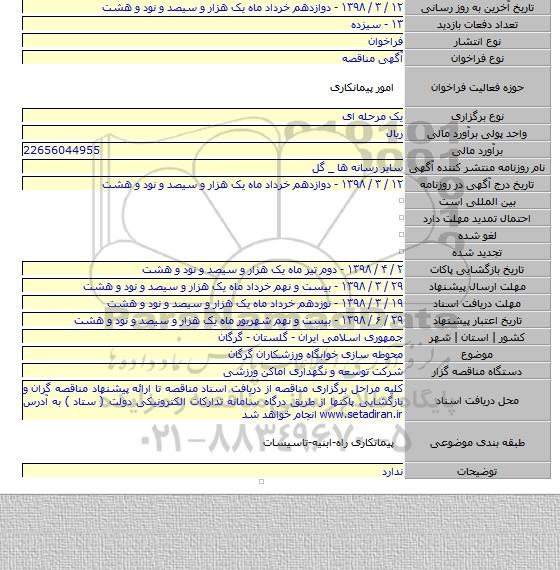 تاریخ آخرین به روز رسانی ۱۲ / ۳ / ۱۳۹۸ - دوازدهم خرداد ماه یک هزار و سیصد و نود و هشت
تعداد دفعات بازدید ۱۳ - سیزده
نوع انتشار فراخوان
نوع فراخوان آگهی مناقصه
حوزه فعالیت فراخوان امور پیمانکاری
نوع برگزاری یک مرحله ای
واحد پولی برآورد مالی ریال
برآورد مالی 22656044955
نام روزنامه منتشر کننده آگهی سایر رسانه ها _ گل
تاریخ درج آگهی در روزنامه ۱۲ / ۳ / ۱۳۹۸ - دوازدهم خرداد ماه یک هزار و سیصد و نود و هشت
بین المللی است
احتمال تمدید مهلت دارد
لغو شده
تجدید شده
تاریخ بازگشایی پاکات ۲ / ۴ / ۱۳۹۸ - دوم تیر ماه یک هزار و سیصد و نود و هشت
مهلت ارسال پیشنهاد ۲۹ / ۳ / ۱۳۹۸ - بیست و نهم خرداد ماه یک هزار و سیصد و نود و هشت
مهلت دریافت اسناد ۱۹ / ۳ / ۱۳۹۸ - نوزدهم خرداد ماه یک هزار و سیصد و نود و هشت
تاریخ اعتبار پیشنهاد ۲۹ / ۶ / ۱۳۹۸ - بیست و نهم شهریور ماه یک هزار و سیصد و نود و هشت
کشور | استان | شهر جمهوری اسلامی ایران - گلستان - گرگان
موضوع محوطه سازی خوابگاه ورزشکاران گرگان
دستگاه مناقصه گزار شرکت توسعه و نگهداری اماکن ورزشی
محل دریافت اسناد کلیه مراحل برگزاری مناقصه از دریافت اسناد مناقصه تا ارائه پیشنهاد مناقصه گران و
بازگشایی پاکتها از طریق درگاه سامانه تدارکات الکترونیکی دولت ( ستاد ) به آدرس
www.setadiran.ir انجام خواهد شد
طبقه بندی موضوعی پیمانکاری راه-ابنیه-تاسیسات
توضیحات ندارد
۰۲۱-۸۸۳۴۹۶۷۰-۵